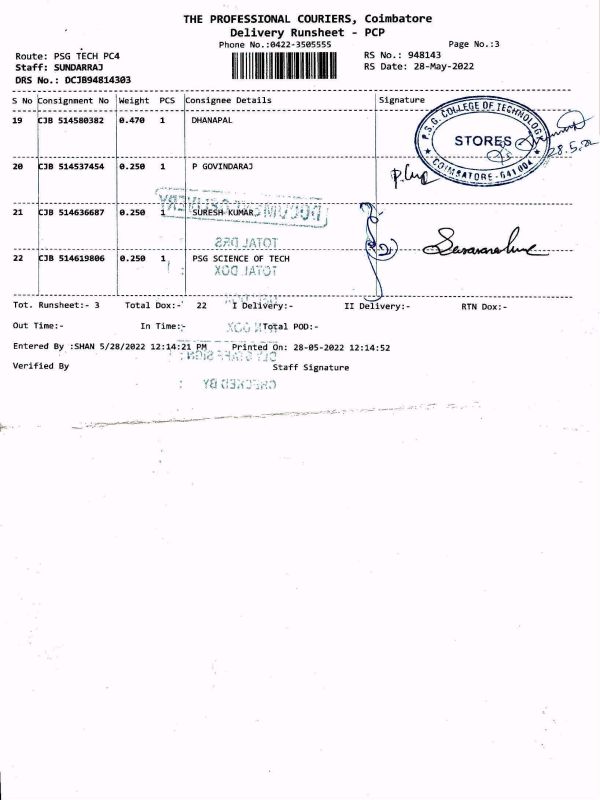 THE PROFESSIONAL COURIERS, Coimbatore
Delivery Runsheet - PCP
Phone No.:0422-3505555 Page No.:3
Route: PSG TECH PC4 RS No.: 948143
Staff: SUNDARRAJ RS Date: 28-May-2022
DRS No.: DCJB94814303
S No Consignment No Weight PCS Consignee Details Signature
19 CJB 514580382 0.470 1 DHANAPAL
P.S.G. COLLEGE OF TECHNOLOGY
STORES
COIMBATORE - 641 004
28.5.22
20 CJB 514537454 0.250 1 P GOVINDARAJ
21 CJB 514636687 0.250 1 SURESH KUMAR
DOCUMENT DELIVERY
TOTAL DRS
22 CJB 514619806 0.250 1 PSG SCIENCE OF TECH
TOTAL DOX
Tot. Runsheet:- 3 Total Dox:- 22 I Delivery:- II Delivery:- RTN Dox:-
Out Time:- In Time:- Total POD:-
Entered By :SHAN 5/28/2022 12:14:21 PM Printed On: 28-05-2022 12:14:52
Verified By Staff Signature
CHECKED BY :